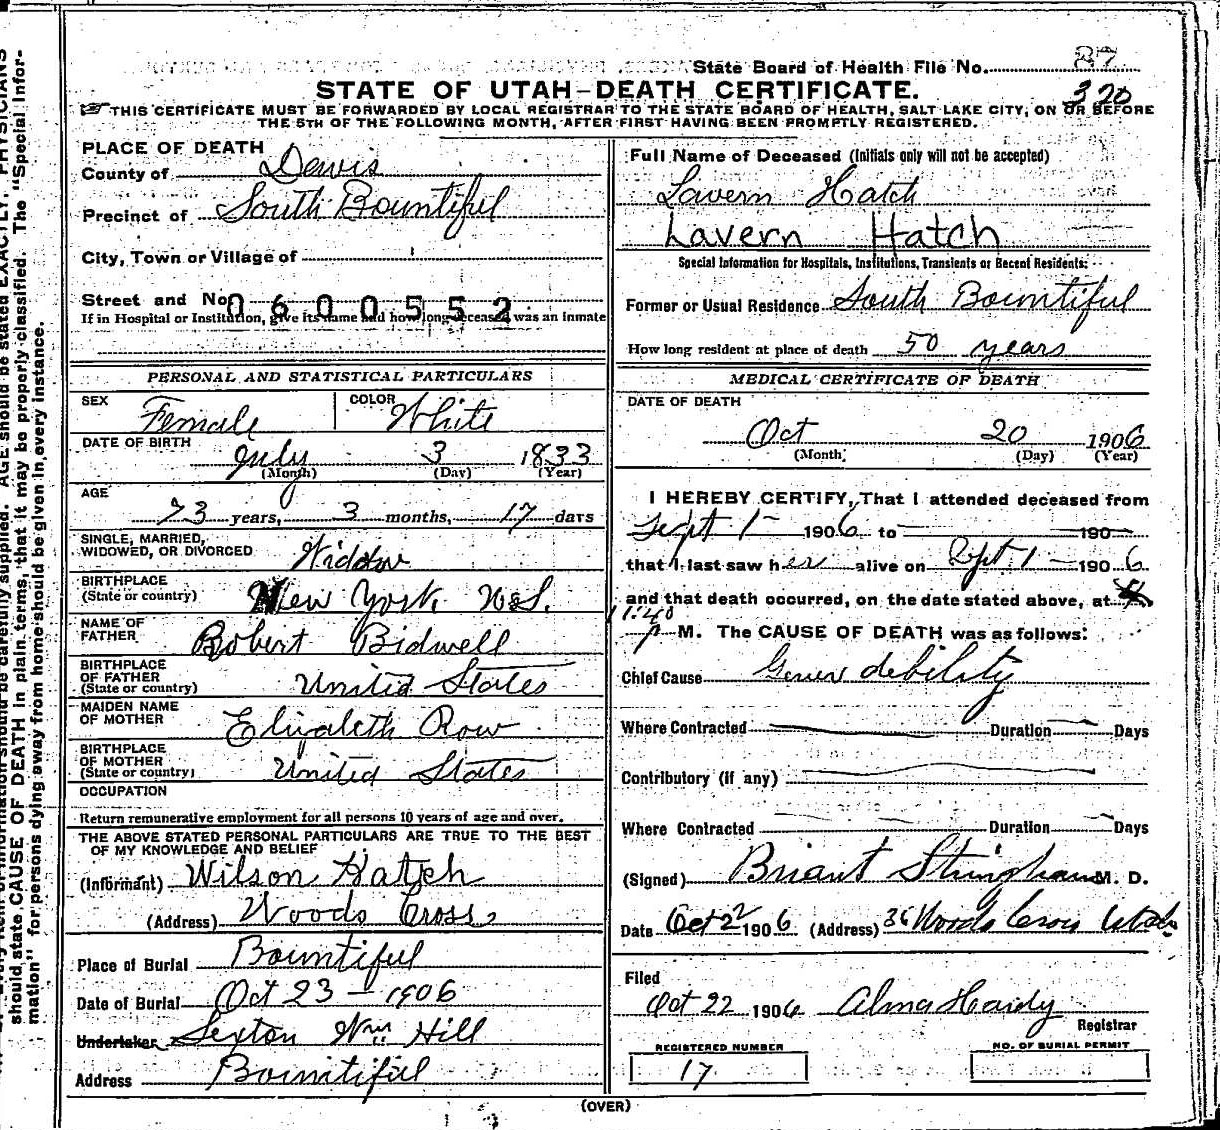 State Board of Health File No. 87
320
STATE OF UTAH—DEATH CERTIFICATE.
THIS CERTIFICATE MUST BE FORWARDED BY LOCAL REGISTRAR TO THE STATE BOARD OF HEALTH, SALT LAKE CITY, ON OR BEFORE
THE 5TH OF THE FOLLOWING MONTH, AFTER FIRST HAVING BEEN PROMPTLY REGISTERED.
PLACE OF DEATH
County of Davis
Precinct of South Bountiful
City, Town or Village of
Street and No. 0600552
If in Hospital or Institution, give its name and how long deceased was an inmate
PERSONAL AND STATISTICAL PARTICULARS
SEX Female COLOR White
DATE OF BIRTH
July 3 1833
(Month) (Day) (Year)
AGE
73 years, 3 months, 17 days
SINGLE, MARRIED,
WIDOWED, OR DIVORCED Widdow
BIRTHPLACE
(State or country) New York U.S.
NAME OF
FATHER Robert Bidwell
BIRTHPLACE
OF FATHER
(State or country) United States
MAIDEN NAME
OF MOTHER Elizabeth Row
BIRTHPLACE
OF MOTHER
(State or country) United States
OCCUPATION
Return remunerative employment for all persons 10 years of age and over.
THE ABOVE STATED PERSONAL PARTICULARS ARE TRUE TO THE BEST
OF MY KNOWLEDGE AND BELIEF
(Informant) Wilson Hatch
(Address) Woods Cross
Place of Burial Bountiful
Date of Burial Oct 23 – 1906
Undertaker Sexton Wm Hill
Address Bountiful
Full Name of Deceased (Initials only will not be accepted)
Lavern Hatch
Lavern Hatch
Special Information for Hospitals, Institutions, Transients or Recent Residents:
Former or Usual Residence South Bountiful
How long resident at place of death 50 years
MEDICAL CERTIFICATE OF DEATH
DATE OF DEATH
Oct 20 1906
(Month) (Day) (Year)
I HEREBY CERTIFY, That I attended deceased from
Sept 1 – 1906 to — 190
that I last saw her alive on Sept. 1 — 190 6
and that death occurred, on the date stated above, at
11:40
P M. The CAUSE OF DEATH was as follows:
Chief Cause debility
Where Contracted Duration Days
Contributory (if any)
Where Contracted Duration Days
(Signed) Briant Stringham M. D.
Date Oct 22 1906 (Address) Woods Cross Utah
Filed
Oct 22 1906 Alma Hardy
Registrar
REGISTERED NUMBER
17
NO. OF BURIAL PERMIT
(OVER)
should state CAUSE OF DEATH in plain terms, that it may be properly classified. The "Special Infor-
mation" for persons dying away from home should be given in every instance.